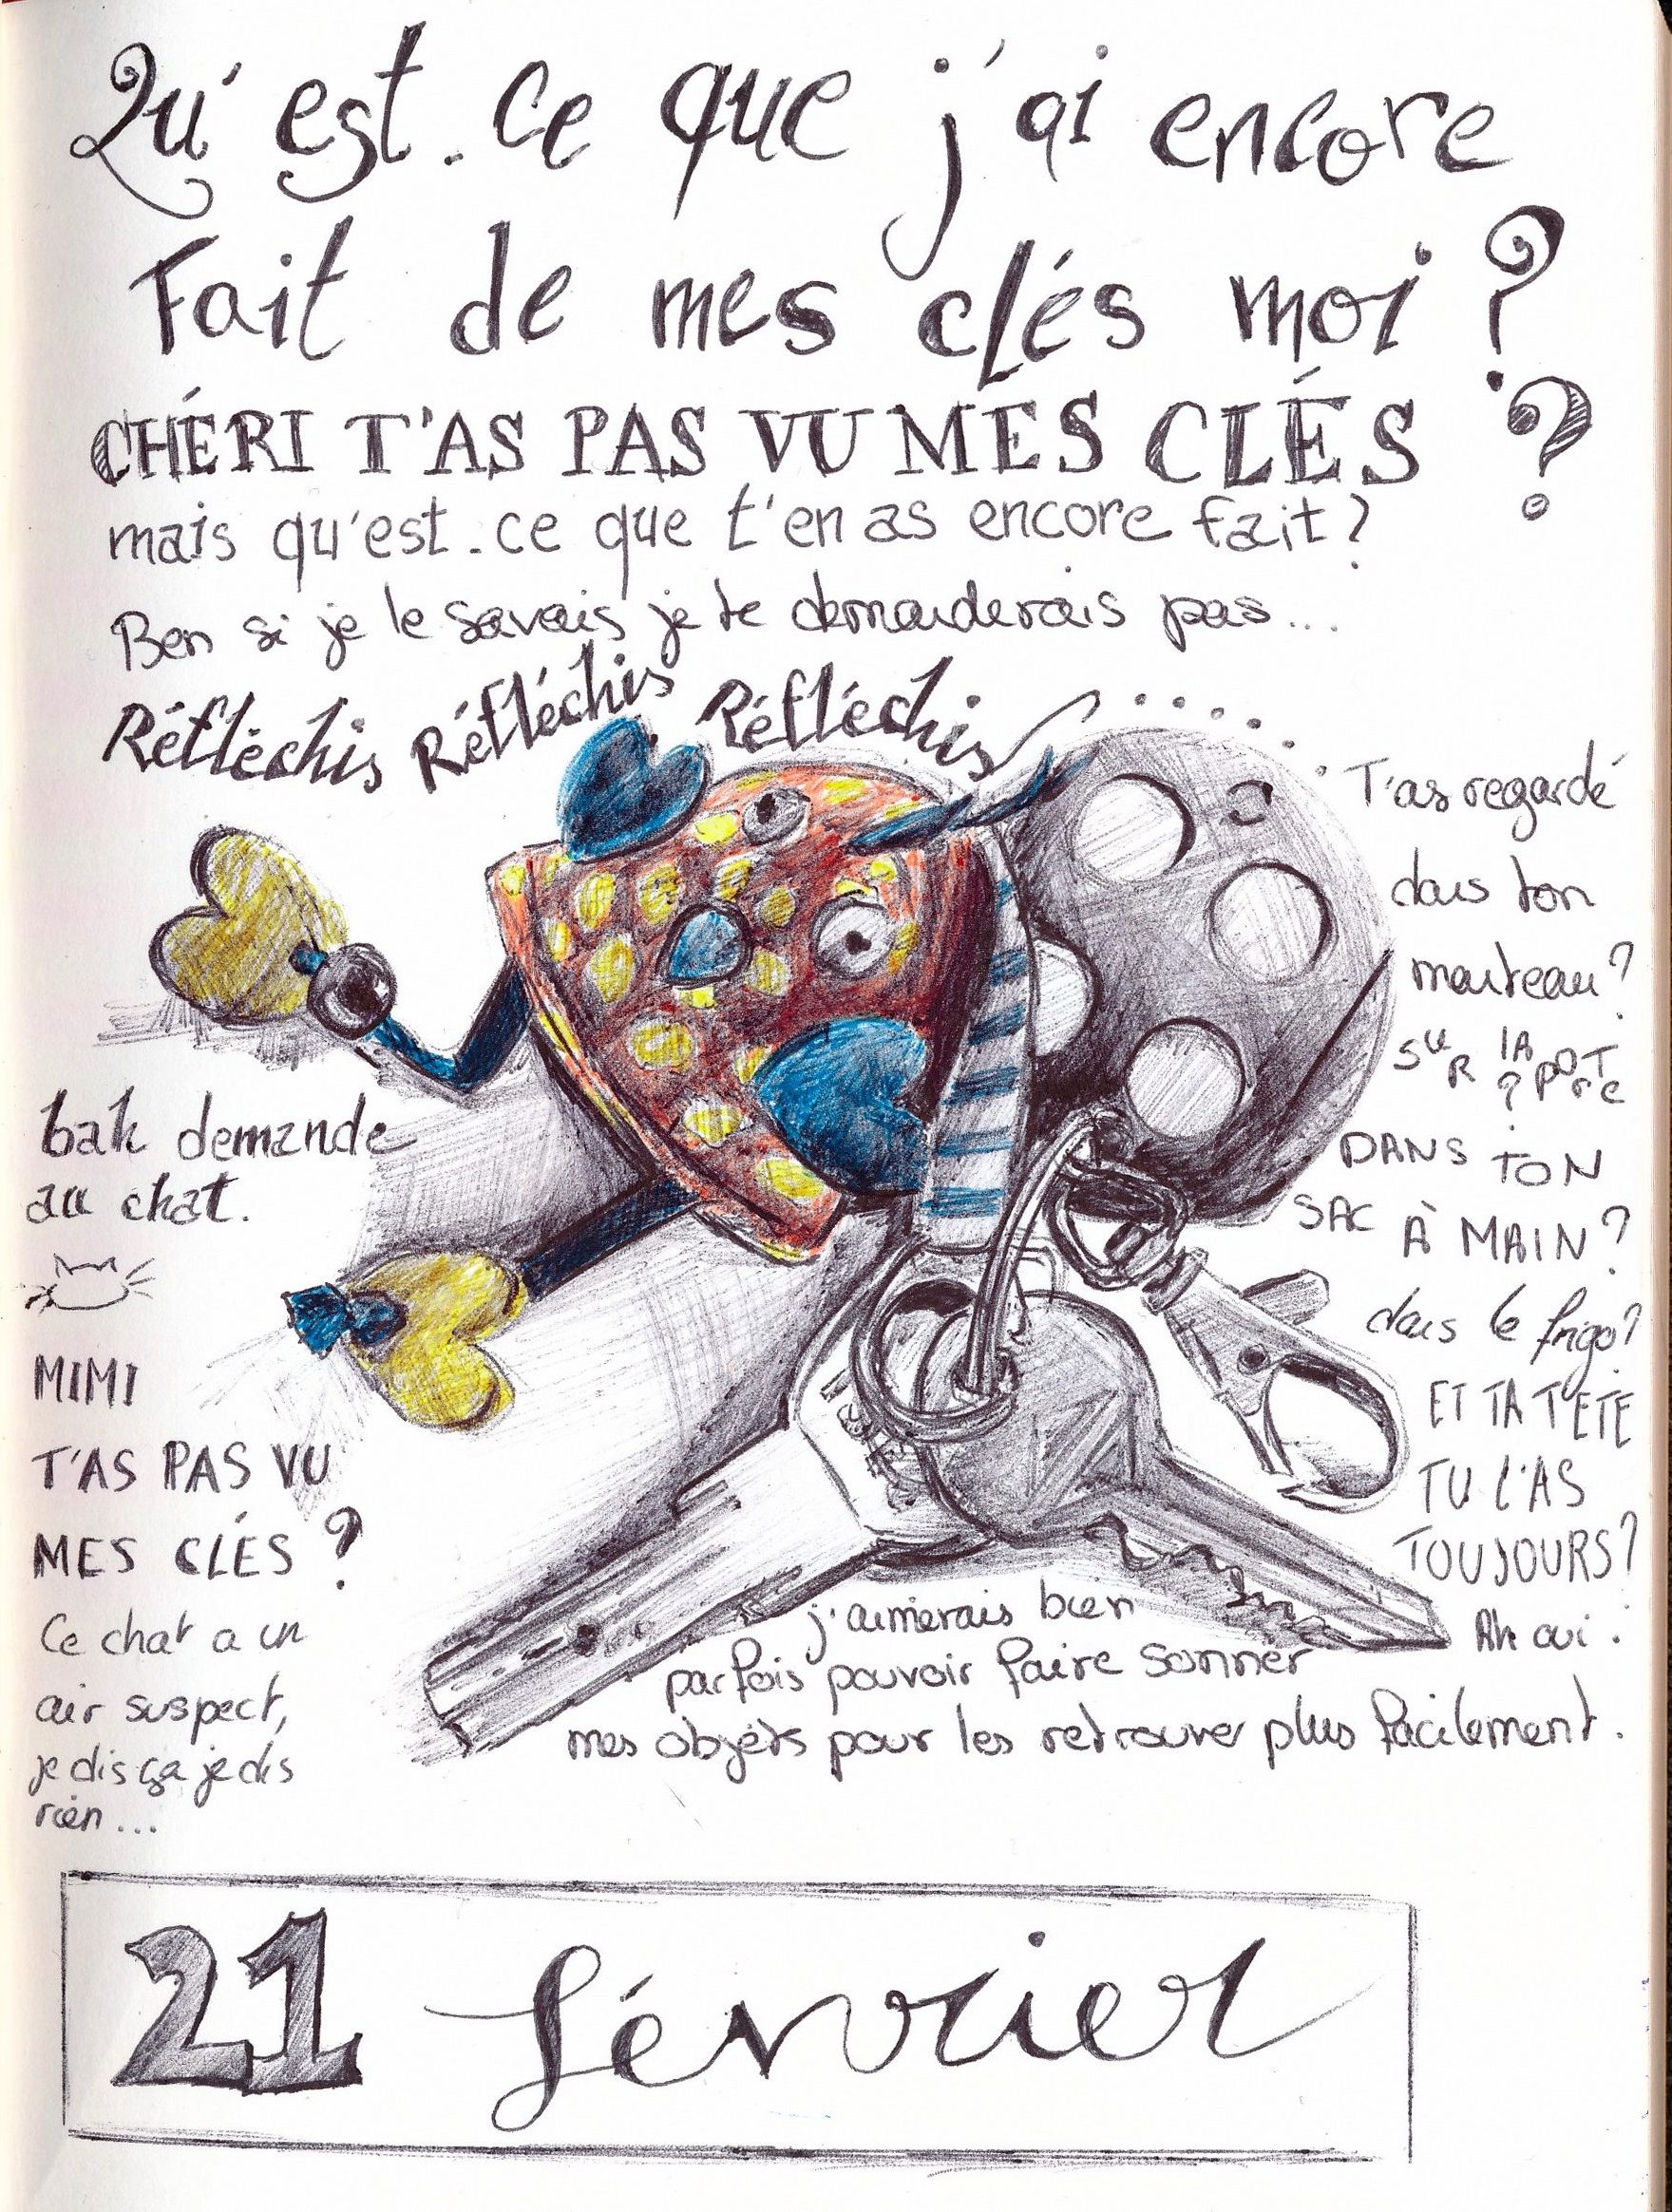 Qu'est-ce que j'ai encore
Fait de mes clés moi ?
CHÉRI T'AS PAS VU MES CLÉS ?
mais qu'est-ce que t'en as encore fait ?
Ben si je le savais je te demanderais pas...
Réfléchis Réfléchis Réfléchis .....
T'as regardé
dans ton
manteau ?
SUR LA PORTE ?
DANS TON
SAC À MAIN ?
dans le frigo ?
ET TA TÊTE
TU L'AS
TOUJOURS ?
Ah oui !
bah demande
au chat.
MIMI
T'AS PAS VU
MES CLÉS ?
Ce chat a un
air suspect,
je dis ça je dis
rien...
j'aimerais bien
parfois pouvoir faire sonner
mes objets pour les retrouver plus facilement.
21 février